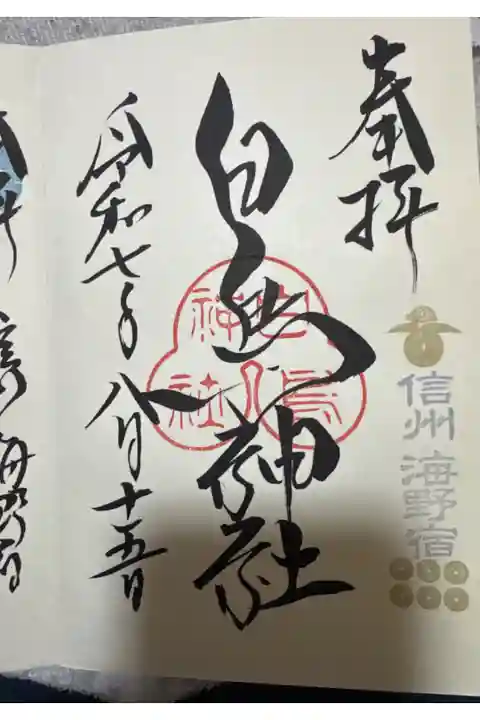 奉拝
信州 海野宿
白鳥神社
白鳥神社
令和七年八月十五日